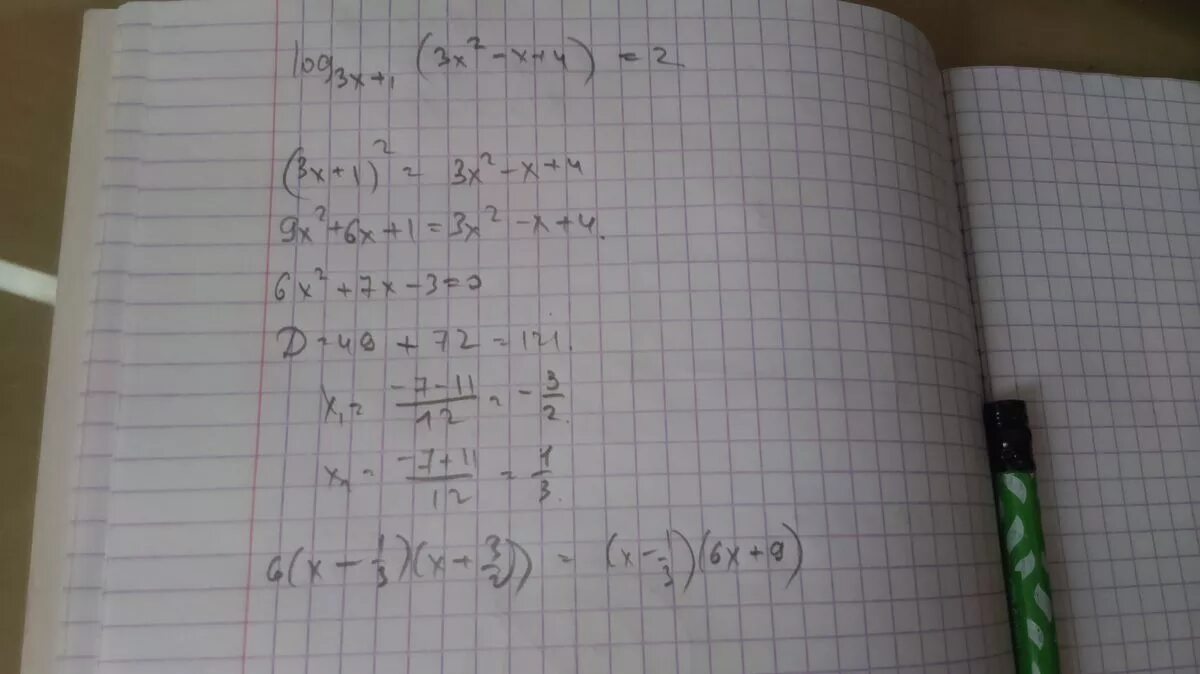 log₃ₓ₊₁ (3x² - x + 4) = 2
(3x + 1)² = 3x² - x + 4
9x² + 6x + 1 = 3x² - x + 4.
6x² + 7x - 3 = 0
D = 49 + 72 = 121.
x₁ = (-7 - 11)/12 = -3/2.
x₁ = (-7 + 11)/12 = 1/3.
6(x - 1/3)(x + 3/2) = (x - 1/3)(6x + 9)